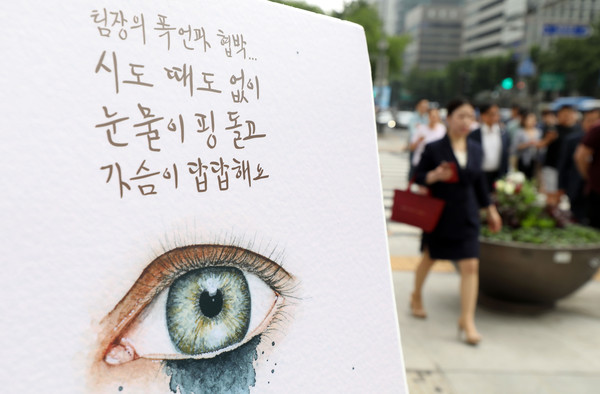 팀장의 폭언과 협박...
시도 때도 없이
눈물이 핑 돌고
가슴이 답답해요